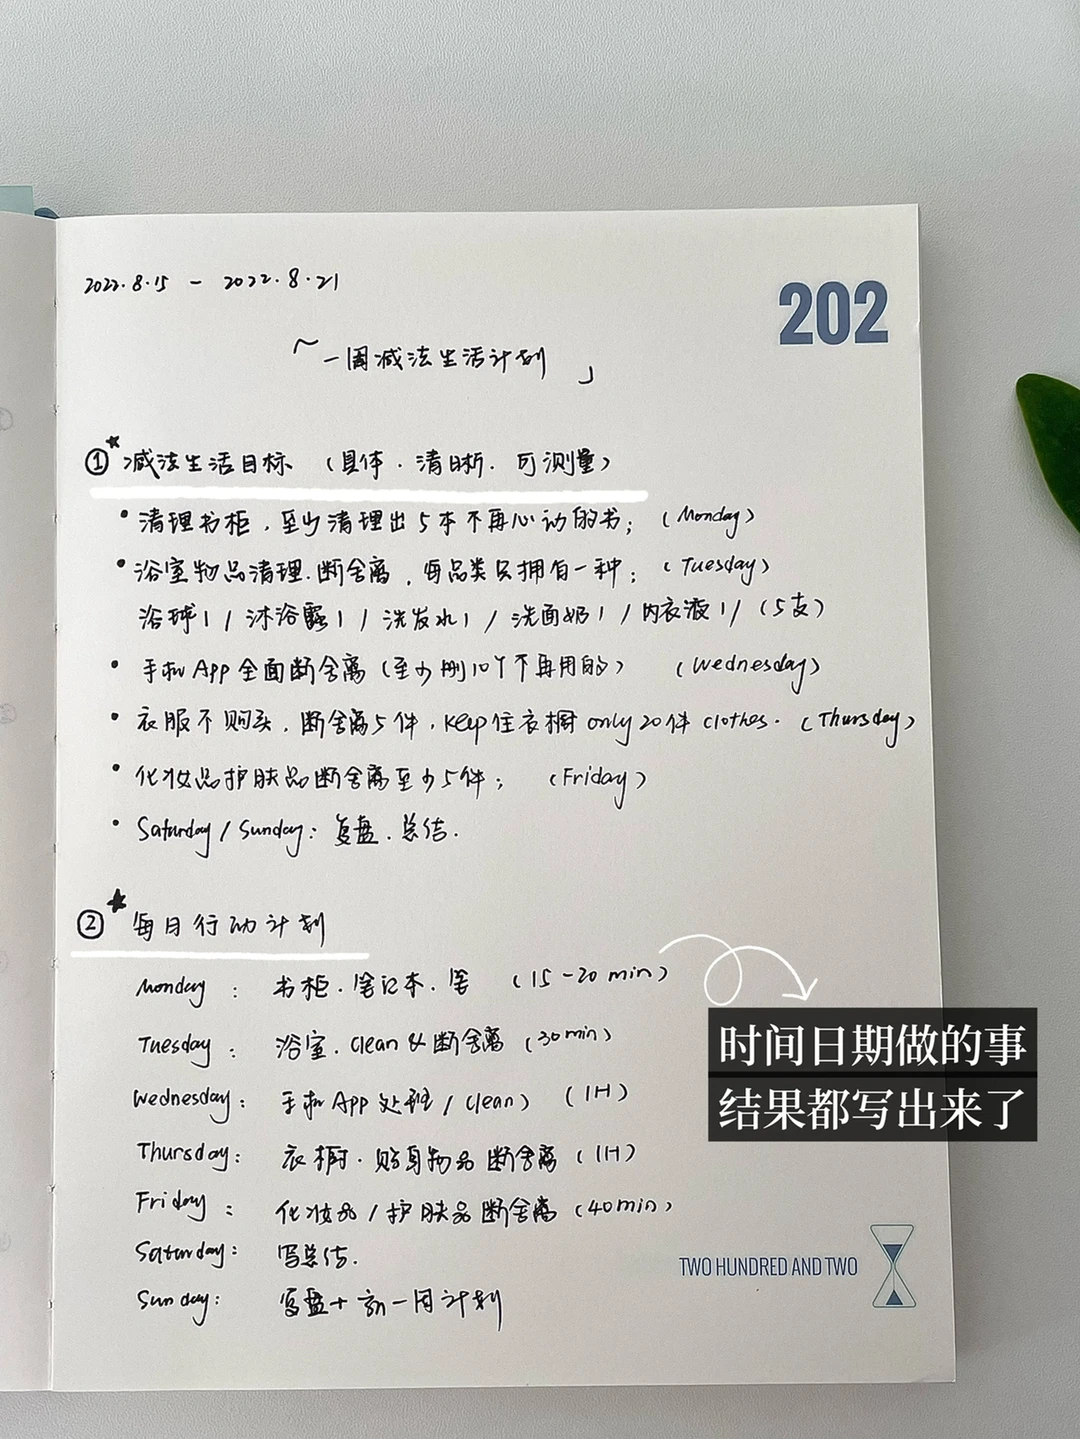 2022.8.15 - 2022.8.21
202
「一周减法生活计划」
① 减法生活目标 (具体.清晰.可测量)
• 清理书柜,至少清理出5本不再心动的书; (Monday)
• 浴室物品清理.断舍离,每品类只拥有一种; (Tuesday)
浴球1 / 沐浴露1 / 洗发水1 / 洗面奶1 / 内衣液1 / (5支)
• 手机App全面断舍离(至少删10个不再用的) (Wednesday)
• 衣服不购买,断舍离5件,keep住衣橱only 20件 clothes. (Thursday)
• 化妆品护肤品断舍离至少5件; (Friday)
• Saturday / Sunday: 复盘.总结.
② 每日行动计划
Monday : 书柜.笔记本.笔 (15-20 min)
Tuesday : 浴室.clean & 断舍离 (30min)
Wednesday: 手机App处理 / clean) (1H)
Thursday: 衣橱.贴身物品断舍离 (1H)
Friday : 化妆品 / 护肤品断舍离 (40min)
Saturday: 写总结.
Sunday: 复盘+新一周计划
时间日期做的事
结果都写出来了
TWO HUNDRED AND TWO